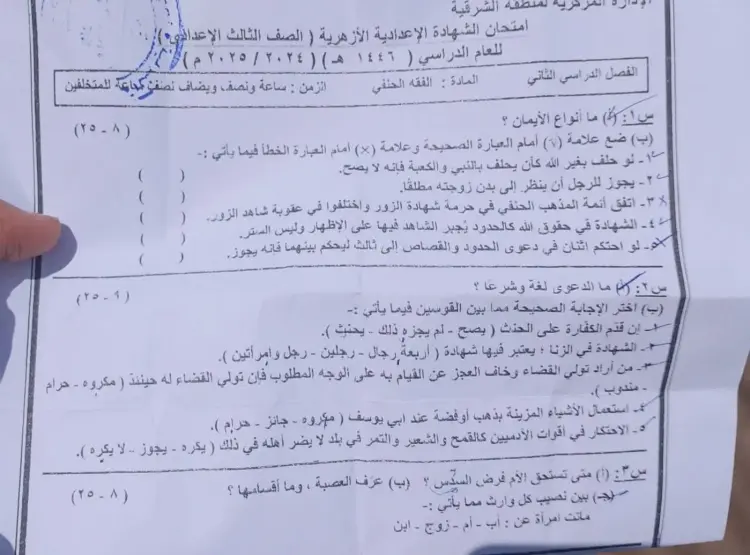 الإدارة المركزية لمنطقة الشرقية
امتحان الشهادة الإعدادية الأزهرية ( الصف الثالث الإعدادي )
للعام الدراسي ( ١٤٤٦ هـ ) ( ٢٠٢٤ / ٢٠٢٥ م )
الفصل الدراسي الثاني المادة : الفقه الحنفي الزمن: ساعة ونصف، ويضاف نصف ساعة للمتخلفين
س١: (أ) ما أنواع الأيمان ؟ (٨ - ٢٥)
(ب) ضع علامة (√) أمام العبارة الصحيحة وعلامة (×) أمام العبارة الخطأ فيما يأتي :-
١- لو حلف بغير الله كأن يحلف بالنبي والكعبة فإنه لا يصح. ( )
٢- يجوز للرجل أن ينظر إلى بدن زوجته مطلقًا. ( )
٣- اتفق أئمة المذهب الحنفي في حرمة شهادة الزور واختلفوا في عقوبة شاهد الزور. ( )
٤- الشهادة في حقوق الله كالحدود يُجبر الشاهد فيها على الإظهار وليس الستر. ( )
٥- لو احتكم اثنان في دعوى الحدود والقصاص إلى ثالث ليحكم بينهما فإنه يجوز. ( )
س٢: (أ) ما الدعوى لغة وشرعًا ؟ (٩ - ٢٥)
(ب) اختر الإجابة الصحيحة مما بين القوسين فيما يأتي :-
١- إن قدّم الكفارة على الحنث ( يصح - لم يجزه ذلك - يحنث ).
٢- الشهادة في الزنا ؛ يعتبر فيها شهادة ( أربعة رجال - رجلين - رجل وامرأتين ).
٣- من أراد تولي القضاء وخاف العجز عن القيام به على الوجه المطلوب فإن تولي القضاء له حينئذ ( مكروه - حرام
- مندوب ).
٤- استعمال الأشياء المزينة بذهب أوفضة عند ابي يوسف ( مكروه - جائز - حرام ).
٥- الاحتكار في أقوات الآدميين كالقمح والشعير والتمر في بلد لا يضر أهله في ذلك ( يكره - يجوز - لا يكره ).
س٣: (أ) متى تستحق الأم فرض السدس ؟ (ب) عرف العصبة ، وما أقسامها ؟ (٨ - ٢٥)
(جـ) بين نصيب كل وارث مما يأتي :-
ماتت امرأة عن : أب - أم - زوج - ابن